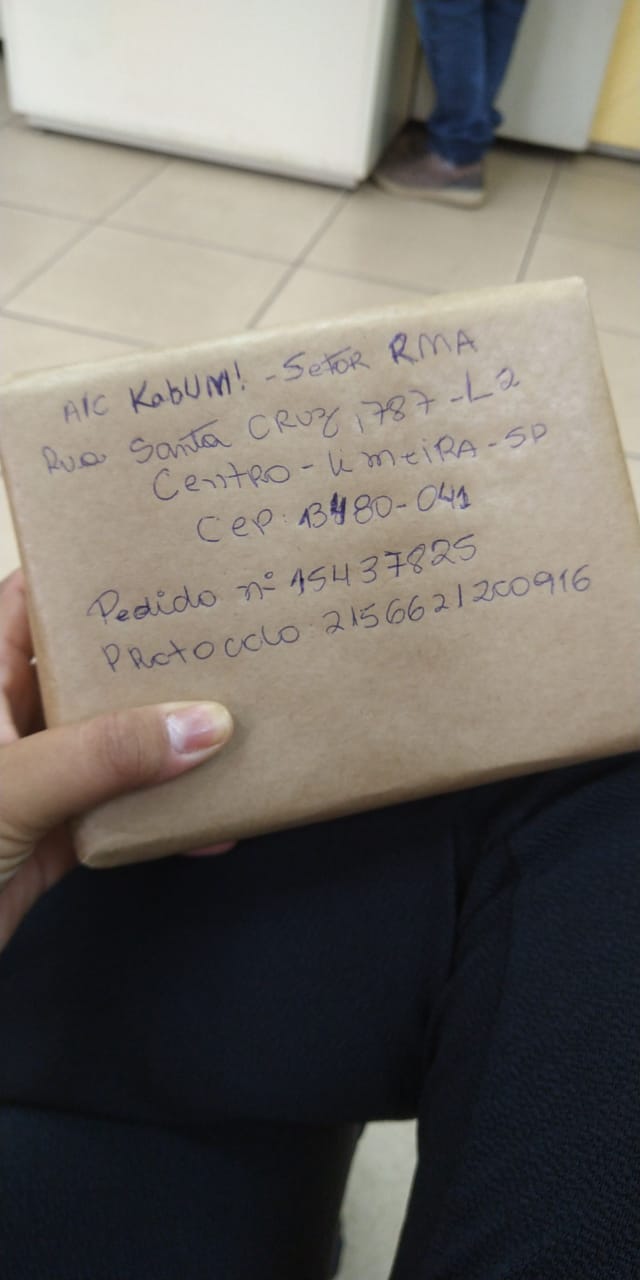 A/C KabUM! - Setor RMA
Rua Santa CRUZ, 787 - L2
Centro - LimeiRA - SP
Cep: 13480-041
Pedido nº 15437825
PRotocolo: 2156621200916